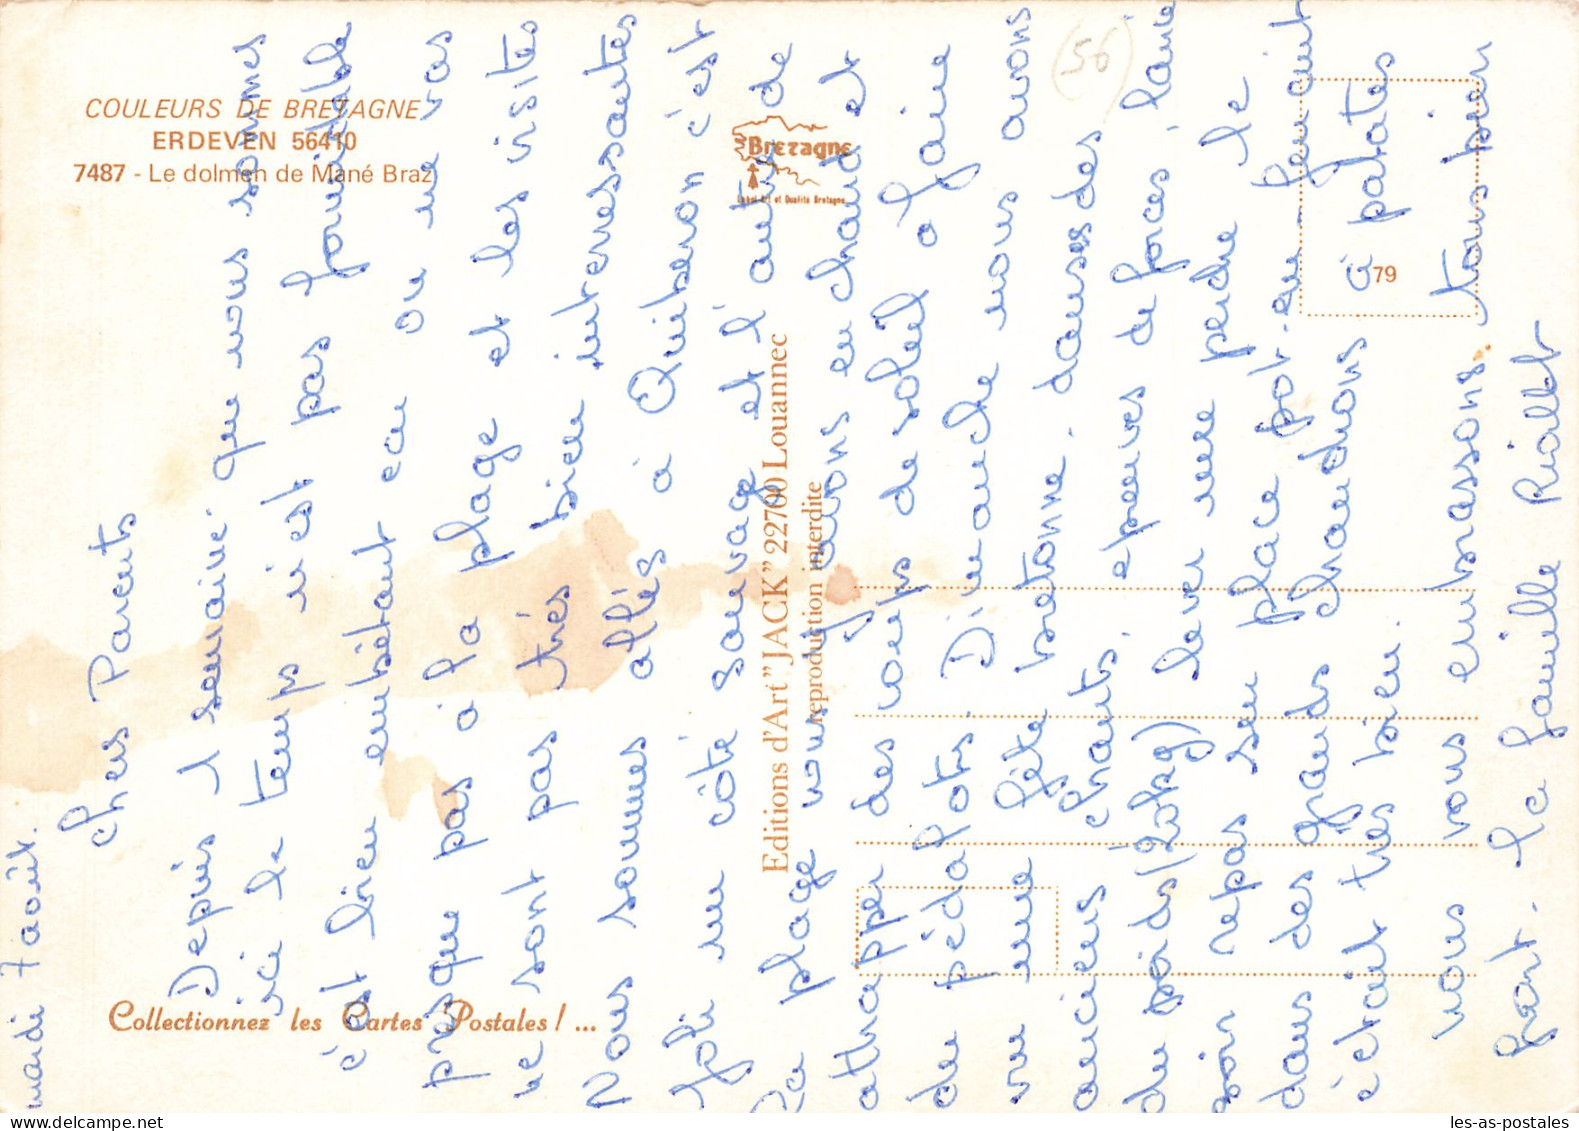 COULEURS DE BRETAGNE
ERDEVEN 56410
7487 - Le dolmen de Mané Braz
Bretagne
Label Art et Qualité Bretagne
(56)
79
Editions d'Art "JACK" 22700 Louannec
reproduction interdite
Collectionnez les Cartes Postales ! ...
mardi 7 août.
Chers Parents
Depuis 1 semaine que nous sommes
ici le temps n'est pas formidable
c'est bien embêtant car on ne vas
presque pas à la plage et les visites
ne sont pas très bien interressantes
Nous sommes allés à Quiberon c'est
joli un côté sauvage et l'autre de
la plage nous y avons eu chaud et
attrapper des coups de soleil à faire
du pédalots. Dimanche nous avons
vu une fête bretonne. danses des
anciens chants, epreuves de forces, lancé
du poids (20kg) lever une perche le
soir repas sur place pot-au-feu cuit
dans des grands chaudrons à patates
c'était très bien.
nous vous embrassons tous bien
fort. la famille Riallet
les-as-postales.com